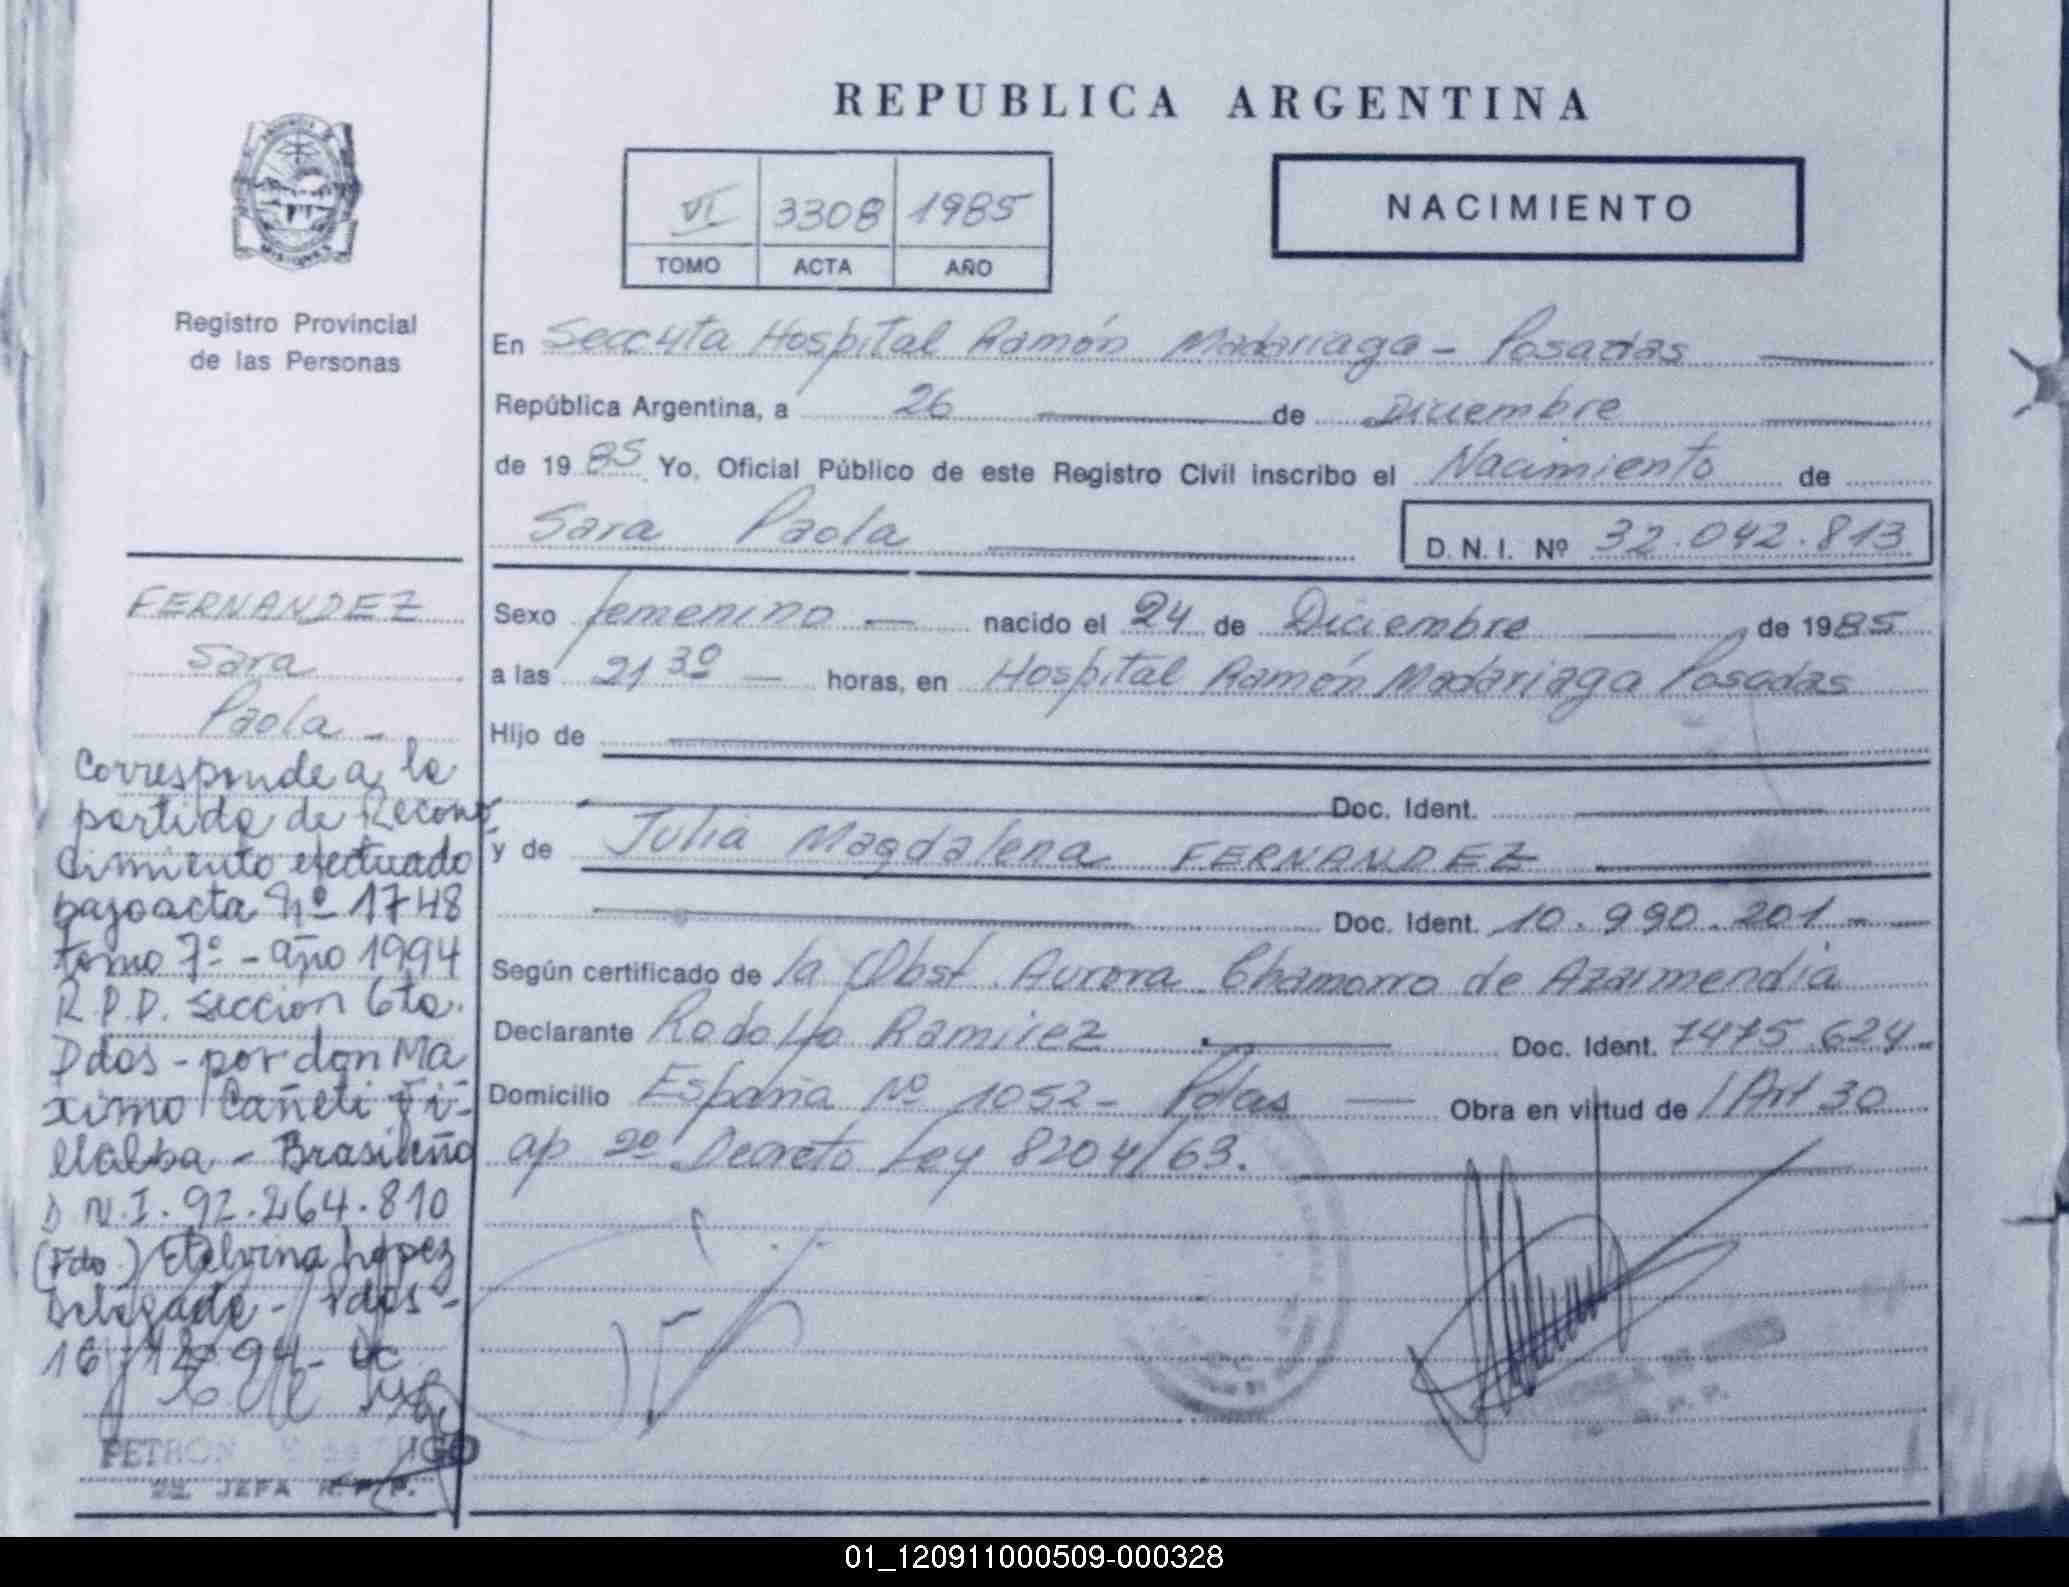 REPUBLICA ARGENTINA
VI 3308 1985
TOMO ACTA AÑO
NACIMIENTO
Registro Provincial
de las Personas
En Secc 4ta Hospital Ramón Madariaga - Posadas
República Argentina, a 26 de Diciembre
de 1985 Yo, Oficial Público de este Registro Civil inscribo el Nacimiento de
Sara Paola
D.N.I. Nº 32.042.813
Sexo femenino nacido el 24 de Diciembre de 1985
a las 21 30 horas, en Hospital Ramón Madariaga Posadas
Hijo de
Doc. Ident.
y de Julia Magdalena FERNANDEZ
Doc. Ident. 10.990.201
Según certificado de la Obst. Aurora Chamorro de Azarmendia
Declarante Rodolfo Ramirez Doc. Ident. 7475.624
Domicilio España Nº 1052 - Pdas Obra en virtud de l Art 30
ap 2º Decreto Ley 8204/63.
FERNANDEZ
Sara
Paola -
Corresponde a la
partida de Recono
cimiento efectuado
bajo acta Nº 1748
tomo 7º - año 1994
R.P.P. seccion 6ta.
Pdas - por don Ma
ximo Cañete Vi-
llalba - Brasileño
D.N.I. 92.264.810
(Fdo.) Etelvina Lopez
Delegada - Pdas -
16 12 94 -
2da JEFA R.P.P.
01_120911000509-000328